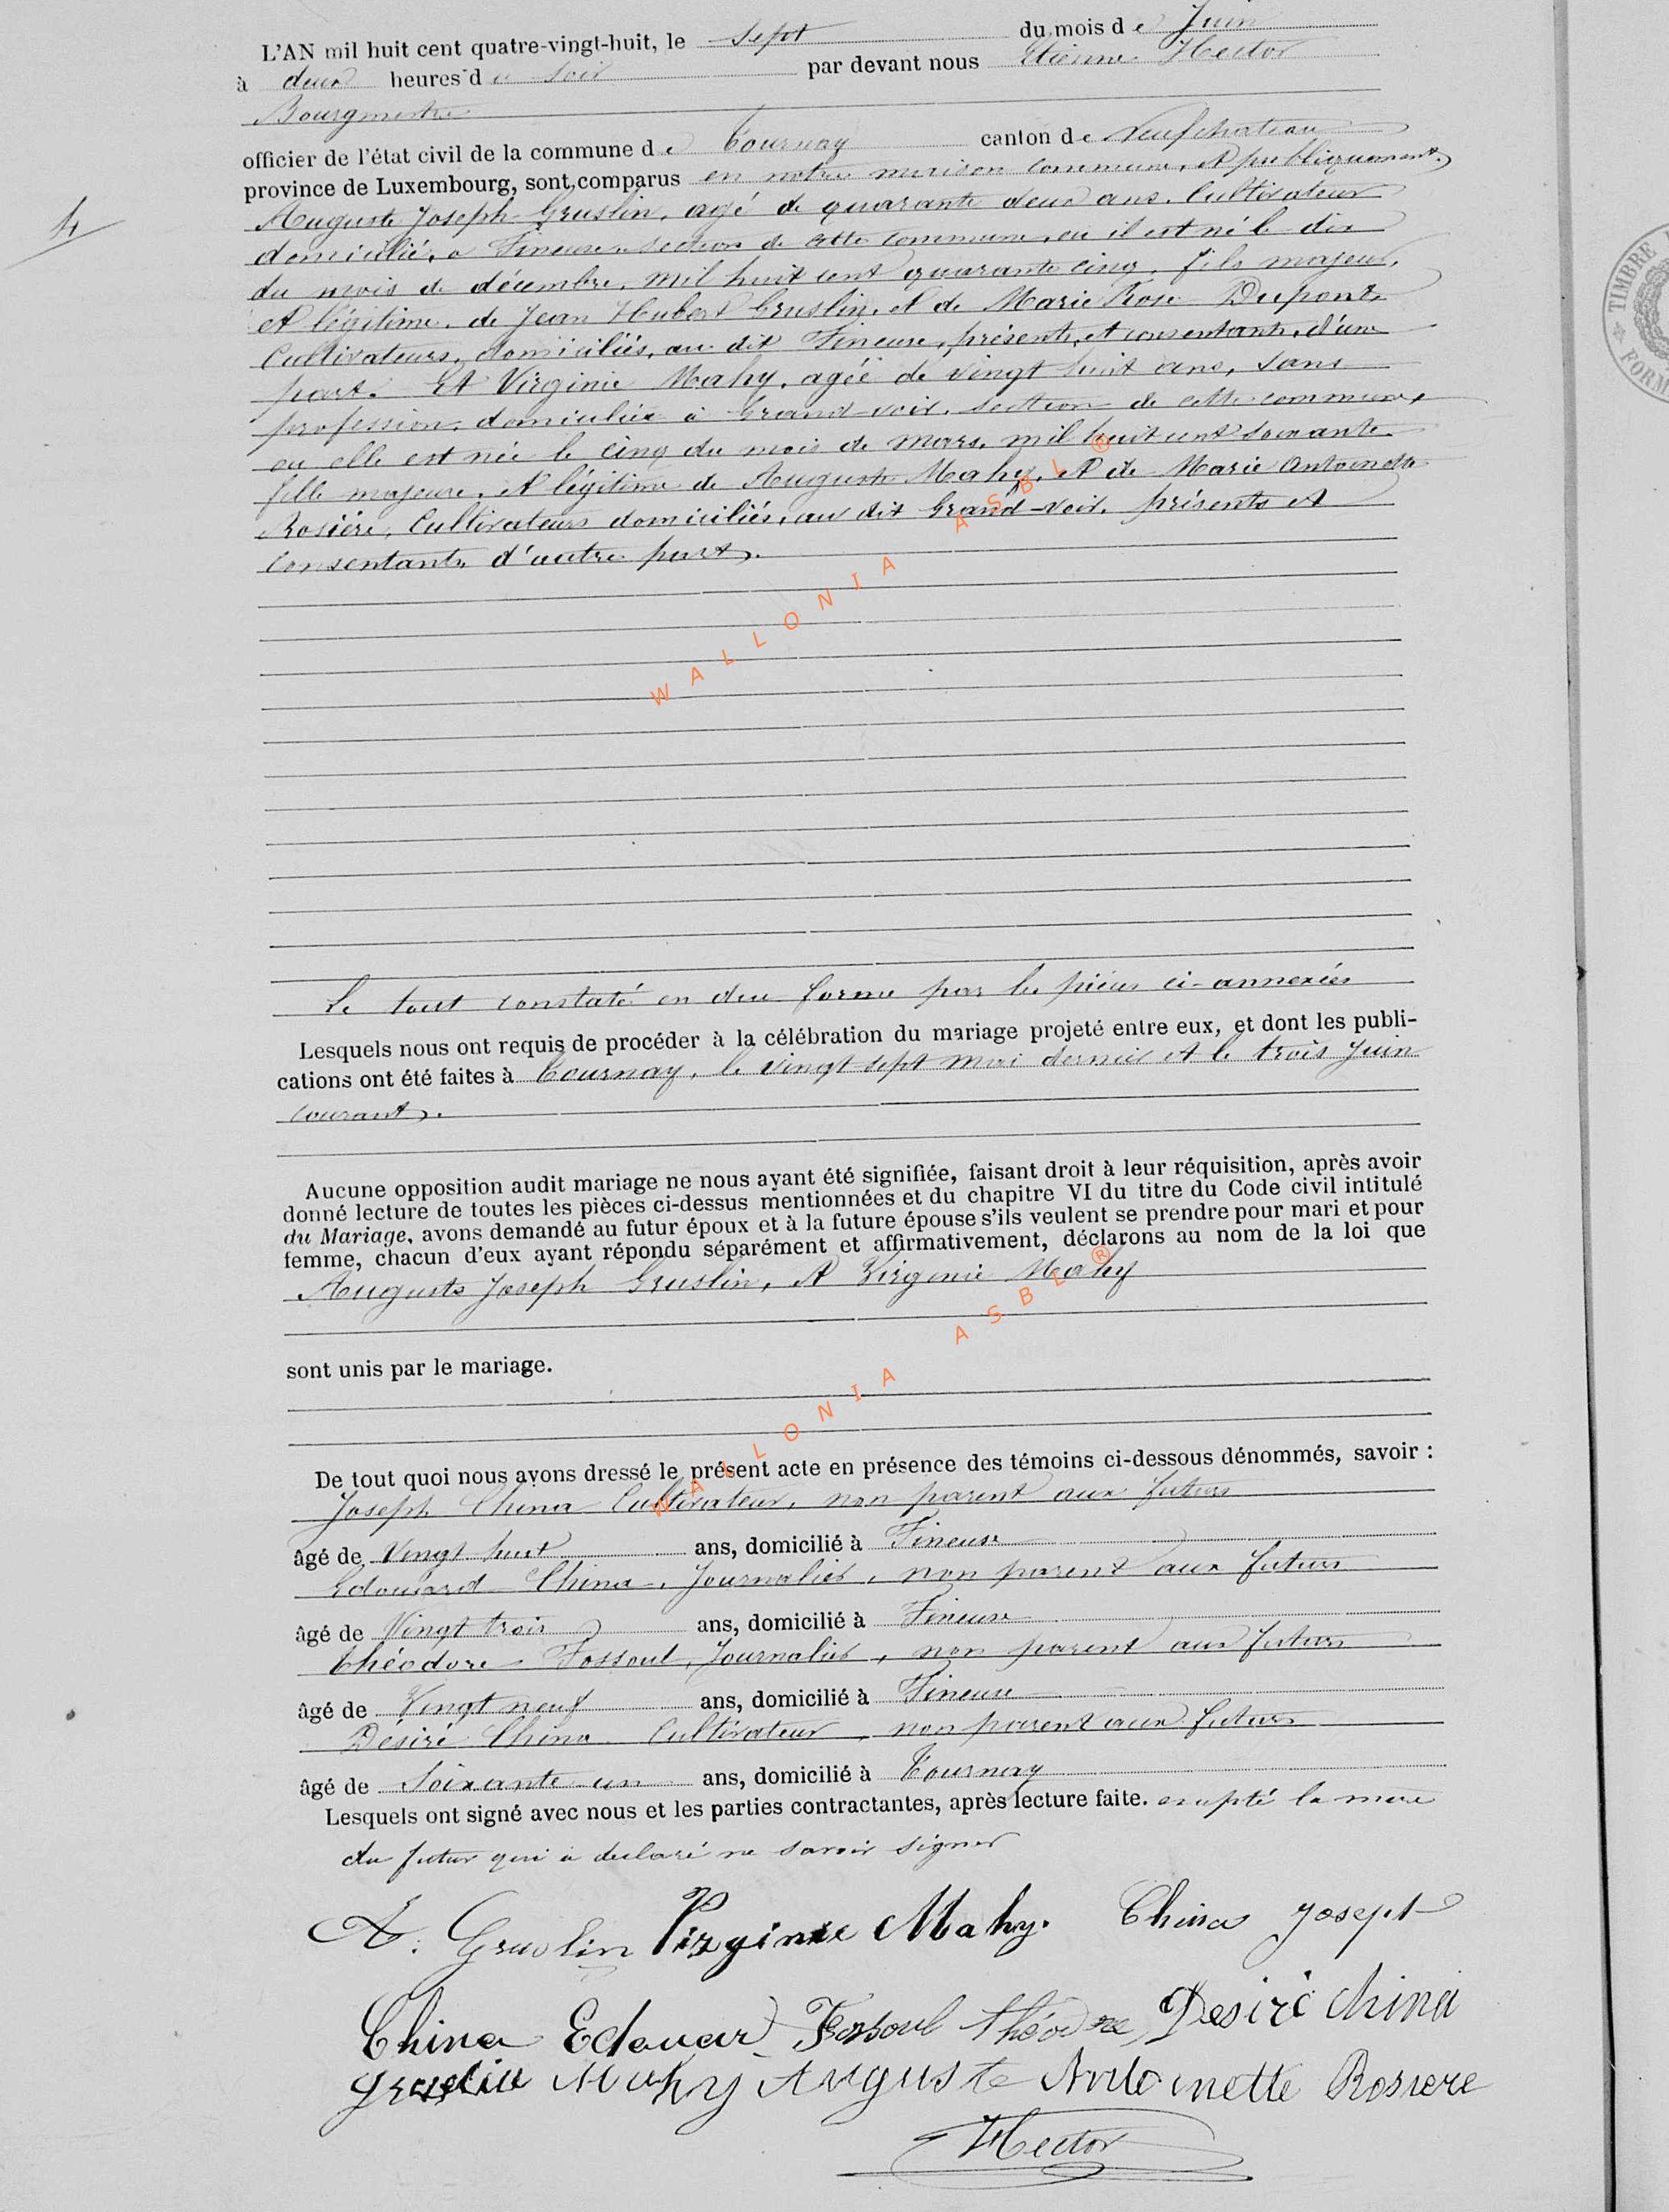 L'AN mil huit cent quatre-vingt-huit, le sept du mois de Juin
à deux heures du soir par devant nous Etienne Hector
Bourgmestre
officier de l'état civil de la commune de Tournay canton de Neufchateau
province de Luxembourg, sont comparus en notre maison commune, et publiquement.
4
Auguste Joseph Gruslin, agé de quarante deux ans. Cultivateur
domicilié, a Fineuse section de cette commune, ou il est né le dix
du mois de décembre, mil huit cent quarante cinq, fils majeur,
et légitime, de Jean Hubert Gruslin, et de Marie Rose Dupont,
Cultivateurs, domiciliés, au dit Fineuse, présents, et consentants, d'une
part. Et Virginie Mahy, agée de vingt huit ans, sans
profession, domiciliée à Grand-voir, section de cette commune
ou elle est née le cinq du mois de mars, mil huit cent soixante
fille majeure, et légitime de Auguste Mahy, et de Marie Antoinette
Rosière, Cultivateurs domiciliés, au dit Grand-voir, présents et
consentants d'autre part.
WALLONIA ASBL ®
Le tout constaté en due forme par les pièces ci-annexées
Lesquels nous ont requis de procéder à la célébration du mariage projeté entre eux, et dont les publi-
cations ont été faites à Tournay, le vingt-sept mai dernier et le trois Juin
courant.
Aucune opposition audit mariage ne nous ayant été signifiée, faisant droit à leur réquisition, après avoir
donné lecture de toutes les pièces ci-dessus mentionnées et du chapitre VI du titre du Code civil intitulé
du Mariage, avons demandé au futur époux et à la future épouse s'ils veulent se prendre pour mari et pour
femme, chacun d'eux ayant répondu séparément et affirmativement, déclarons au nom de la loi que
Auguste Joseph Gruslin, et Virginie Mahy
sont unis par le mariage.
WALLONIA ASBL ®
De tout quoi nous avons dressé le présent acte en présence des témoins ci-dessous dénommés, savoir :
Joseph China Cultivateur, non parent aux futurs
âgé de Vingt huit ans, domicilié à Fineuse
Edouard China, Journalier, non parent aux futurs
âgé de Vingt trois ans, domicilié à Fineuse
Théodore Fossoul, Journalier, non parent aux futurs
âgé de Vingt neuf ans, domicilié à Fineuse
Désiré China Cultivateur, non parent aux futurs
âgé de Soixante un ans, domicilié à Tournay
Lesquels ont signé avec nous et les parties contractantes, après lecture faite. excepté la mère
du futur qui a déclaré ne savoir signer
A. Gruslin Virginie Mahy. China Josept
China Edouar Fossoul théodore Desiré China
Gruslin Mahy Auguste Antoinette Rosiere
Hector
TIMBRE
FORM